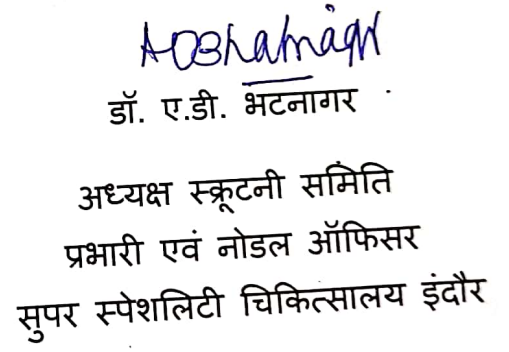 ADBhatnagar
डॉ. ए.डी. भटनागर
अध्यक्ष स्क्रूटनी समिति
प्रभारी एवं नोडल ऑफिसर
सुपर स्पेशलिटी चिकित्सालय इंदौर